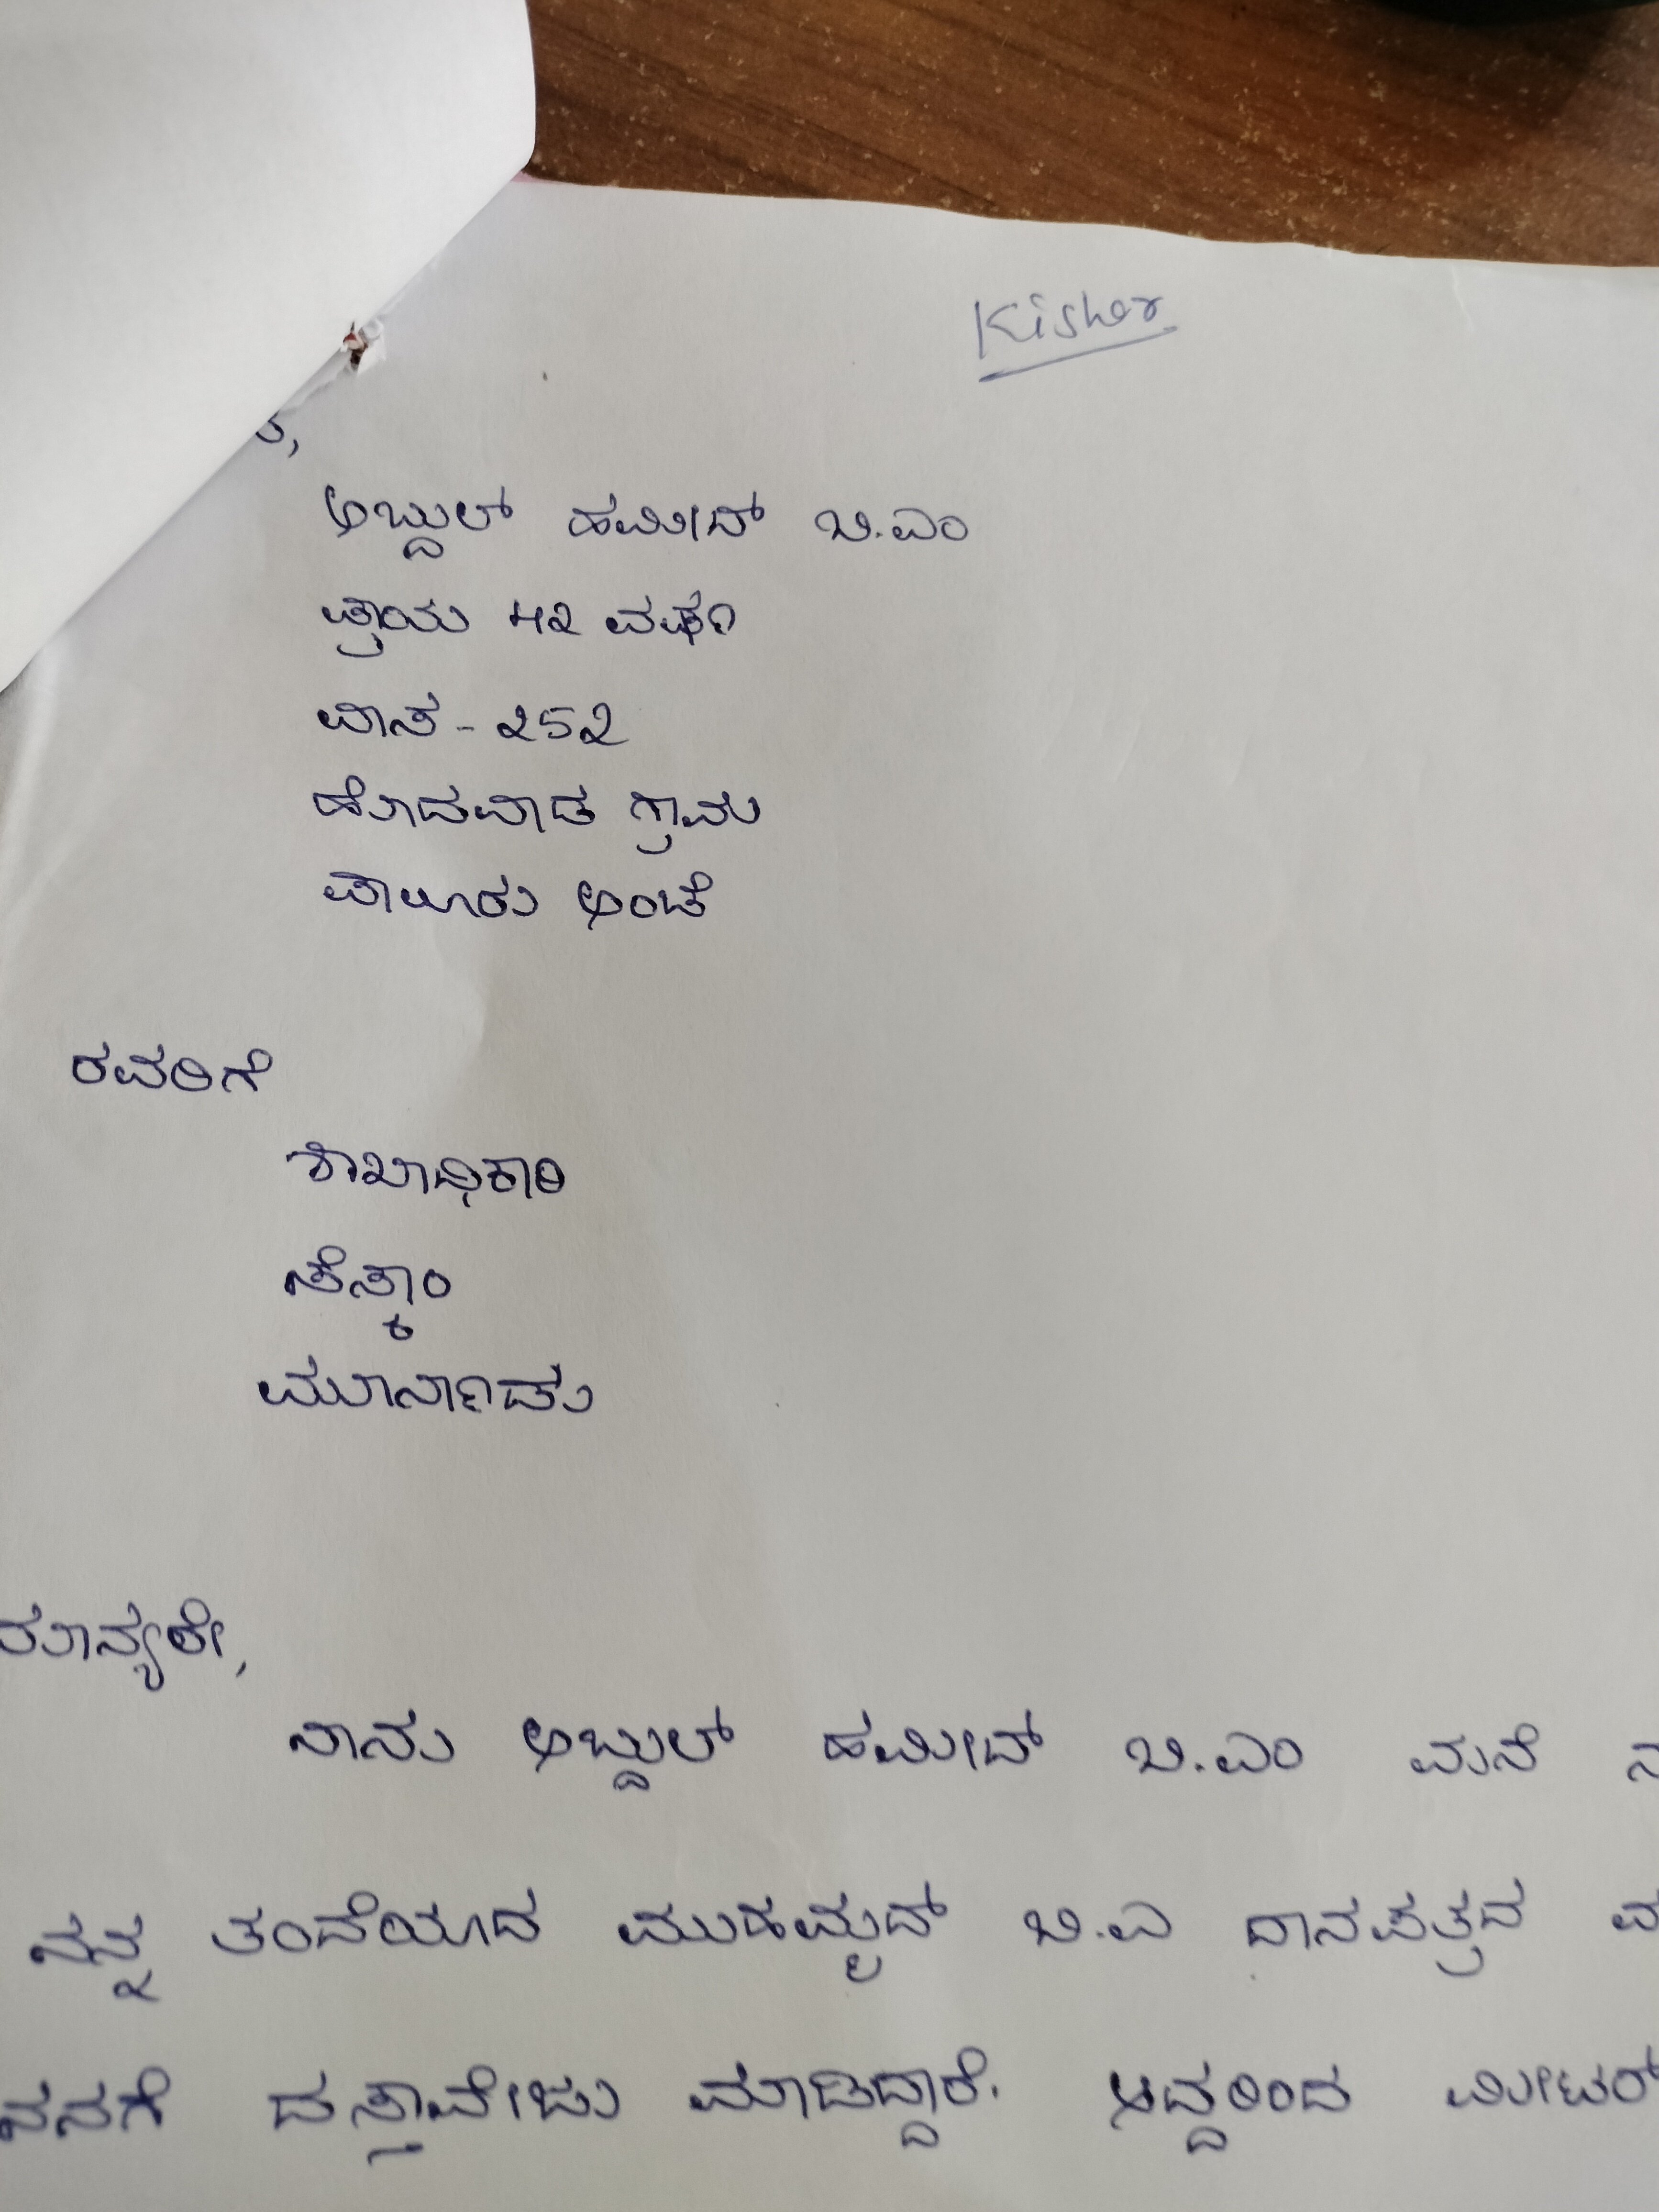 Kisher
ಅಬ್ದುಲ್ ಹಮೀದ್ ಬಿ.ಎಂ
ಪ್ರಾಯ 42 ವರ್ಷ
ವಾಸ - 252
ಹೊದವಾಡ ಗ್ರಾಮ
ಪಾಲೂರು ಅಂಚೆ
ರವರಿಗೆ
ಶಾಖಾಧಿಕಾರಿ
ಸೆಸ್ಕಾಂ
ಮೂರ್ನಾಡು
ಮಾನ್ಯರೇ,
ನಾನು ಅಬ್ದುಲ್ ಹಮೀದ್ ಬಿ.ಎಂ ಮನೆ
ನನ್ನ ತಂದೆಯಾದ ಮುಹಮ್ಮದ್ ಬಿ.ಎ ದಾನಪತ್ರದ
ನನಗೆ ದಸ್ತಾವೇಜು ಮಾಡಿದ್ದಾರೆ. ಆದ್ದರಿಂದ ಮೀಟರ್